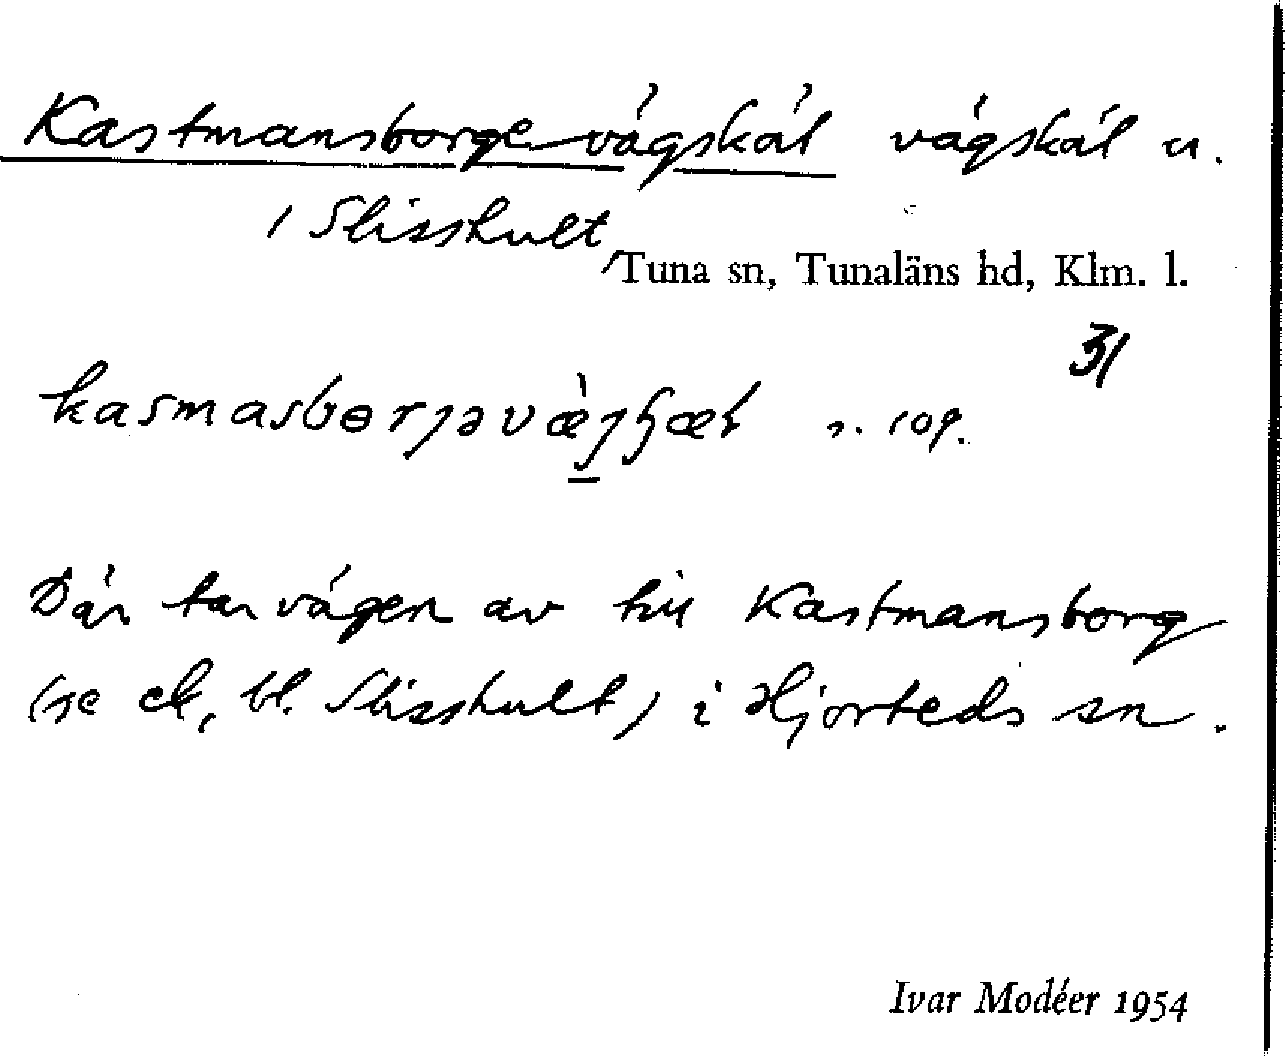 Kastmansborge-vägskäl vägskäl n.
i Slisshult,
Tuna sn, Tunaläns hd, Klm. l.
31
kasmasbɵrjəvæ̀jʃæɫ s. 109.
Där tar vägen av till Kastmansborg
(se ek. bl. Slisshult) i Hjorteds sn.
Ivar Modéer 1954